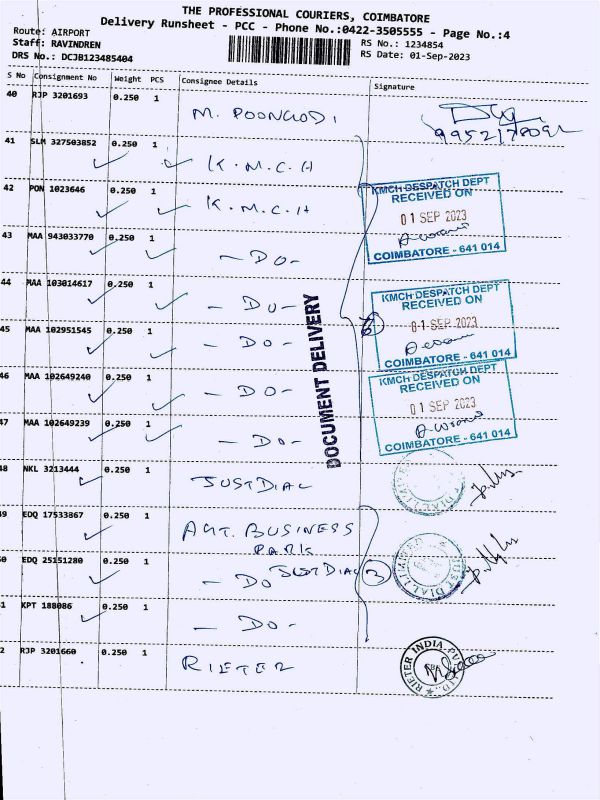 THE PROFESSIONAL COURIERS, COIMBATORE
Delivery Runsheet - PCC - Phone No.:0422-3505555 - Page No.:4
Route: AIRPORT
Staff: RAVINDREN
RS No.: 1234854
DRS No.: DCJB123485404
RS Date: 01-Sep-2023
S No Consignment No Weight PCS Consignee Details Signature
40 RJP 3201693 0.250 1
M. POONGODI
41 SLM 327503852 0.250 1
K.M.C.H
42 PON 1023646 0.250 1
K.M.C.H
KMCH DESPATCH DEPT
RECEIVED ON
01 SEP 2023
COIMBATORE - 641 014
43 MAA 943033770 0.250 1
- DO -
44 MAA 103014617 0.250 1
- DO -
KMCH DESPATCH DEPT
RECEIVED ON
01 SEP 2023
COIMBATORE - 641 014
45 MAA 102951545 0.250 1
- DO -
DOCUMENT DELIVERY
46 MAA 102649240 0.250 1
- DO -
KMCH DESPATCH DEPT
RECEIVED ON
01 SEP 2023
COIMBATORE - 641 014
47 MAA 102649239 0.250 1
- DO -
48 NKL 3213444 0.250 1
JUSTDIAL
DIAL LIMITED
49 EDQ 17533867 0.250 1
AGT. BUSINESS
PARK
50 EDQ 25151280 0.250 1
- DO JUSTDIAL
3
JUST DIAL LIMITED
51 KPT 188086 0.250 1
- DO -
52 RJP 3201660 0.250 1
RIETER
RIETER INDIA PVT. LTD.